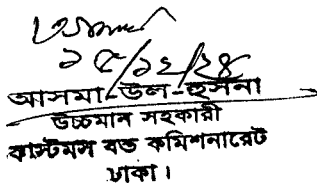 ১৫/১২/২৪
আসমা-উল-হুসনা
উচ্চমান সহকারী
কাস্টমস বন্ড কমিশনারেট
ঢাকা।